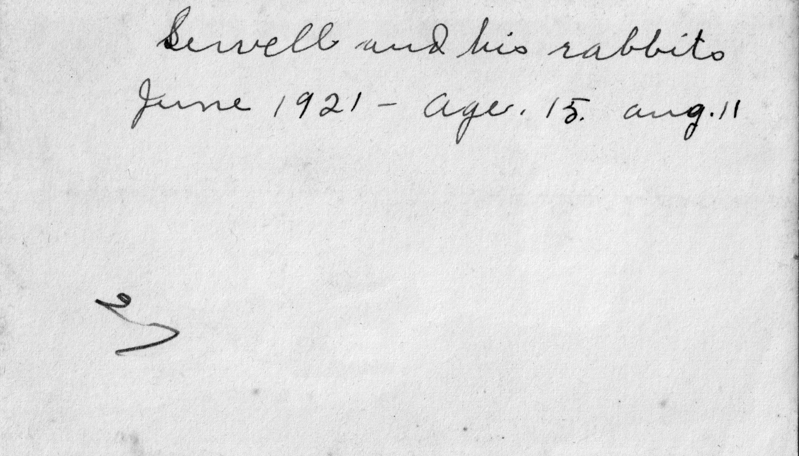 Sewell and his rabbits
June 1921 - age. 15. aug. 11